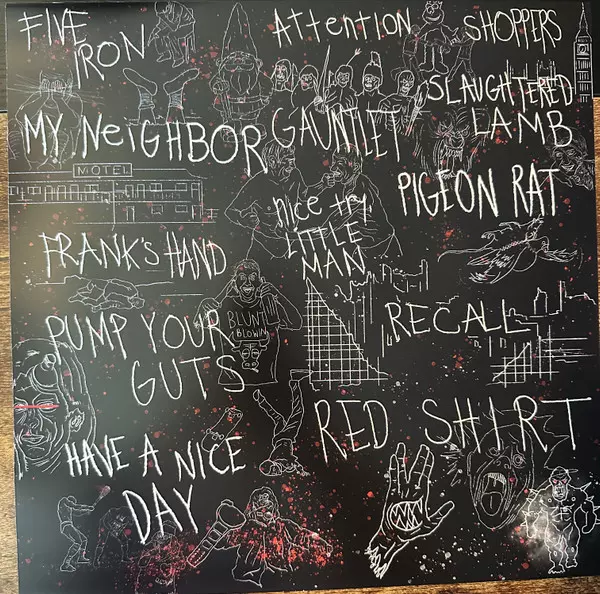 FIVE IRON
Attention SHOPPERS
MY NEIGHBOR
GAUNTLET
SLAUGHTERED LAMB
MOTEL
PIGEON RAT
nice try
LITTLE
MAN
FRANK'S HAND
BLUNT
BLOWIN
PUMP YOUR
GUTS
RECALL
RED SHIRT
HAVE A NICE
DAY